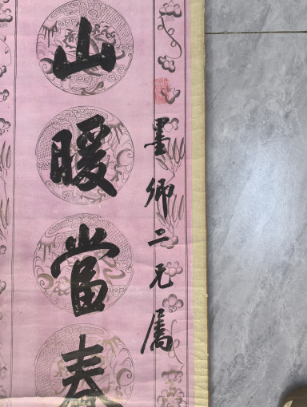 墨卿二兄屬
山暖當春